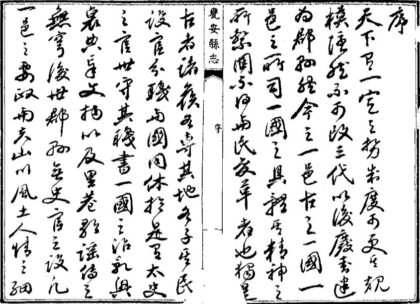 序
天下有一定之勢制度可更其規
模終不可改三代以後廢建
為郡縣然今之一邑古之一國一
邑之所司一國之具體其精神之
所繫固不得與民變革者也獨是
安縣志
序
古者諸侯各專其地各子其民
設官分職與國同休於是有太史
之官世守其職書一國之治亂興
衰典章文物以及里巷歌謠傳之
無窮後世郡縣無史官之設凡
一邑之要政與夫山川風土人情之細